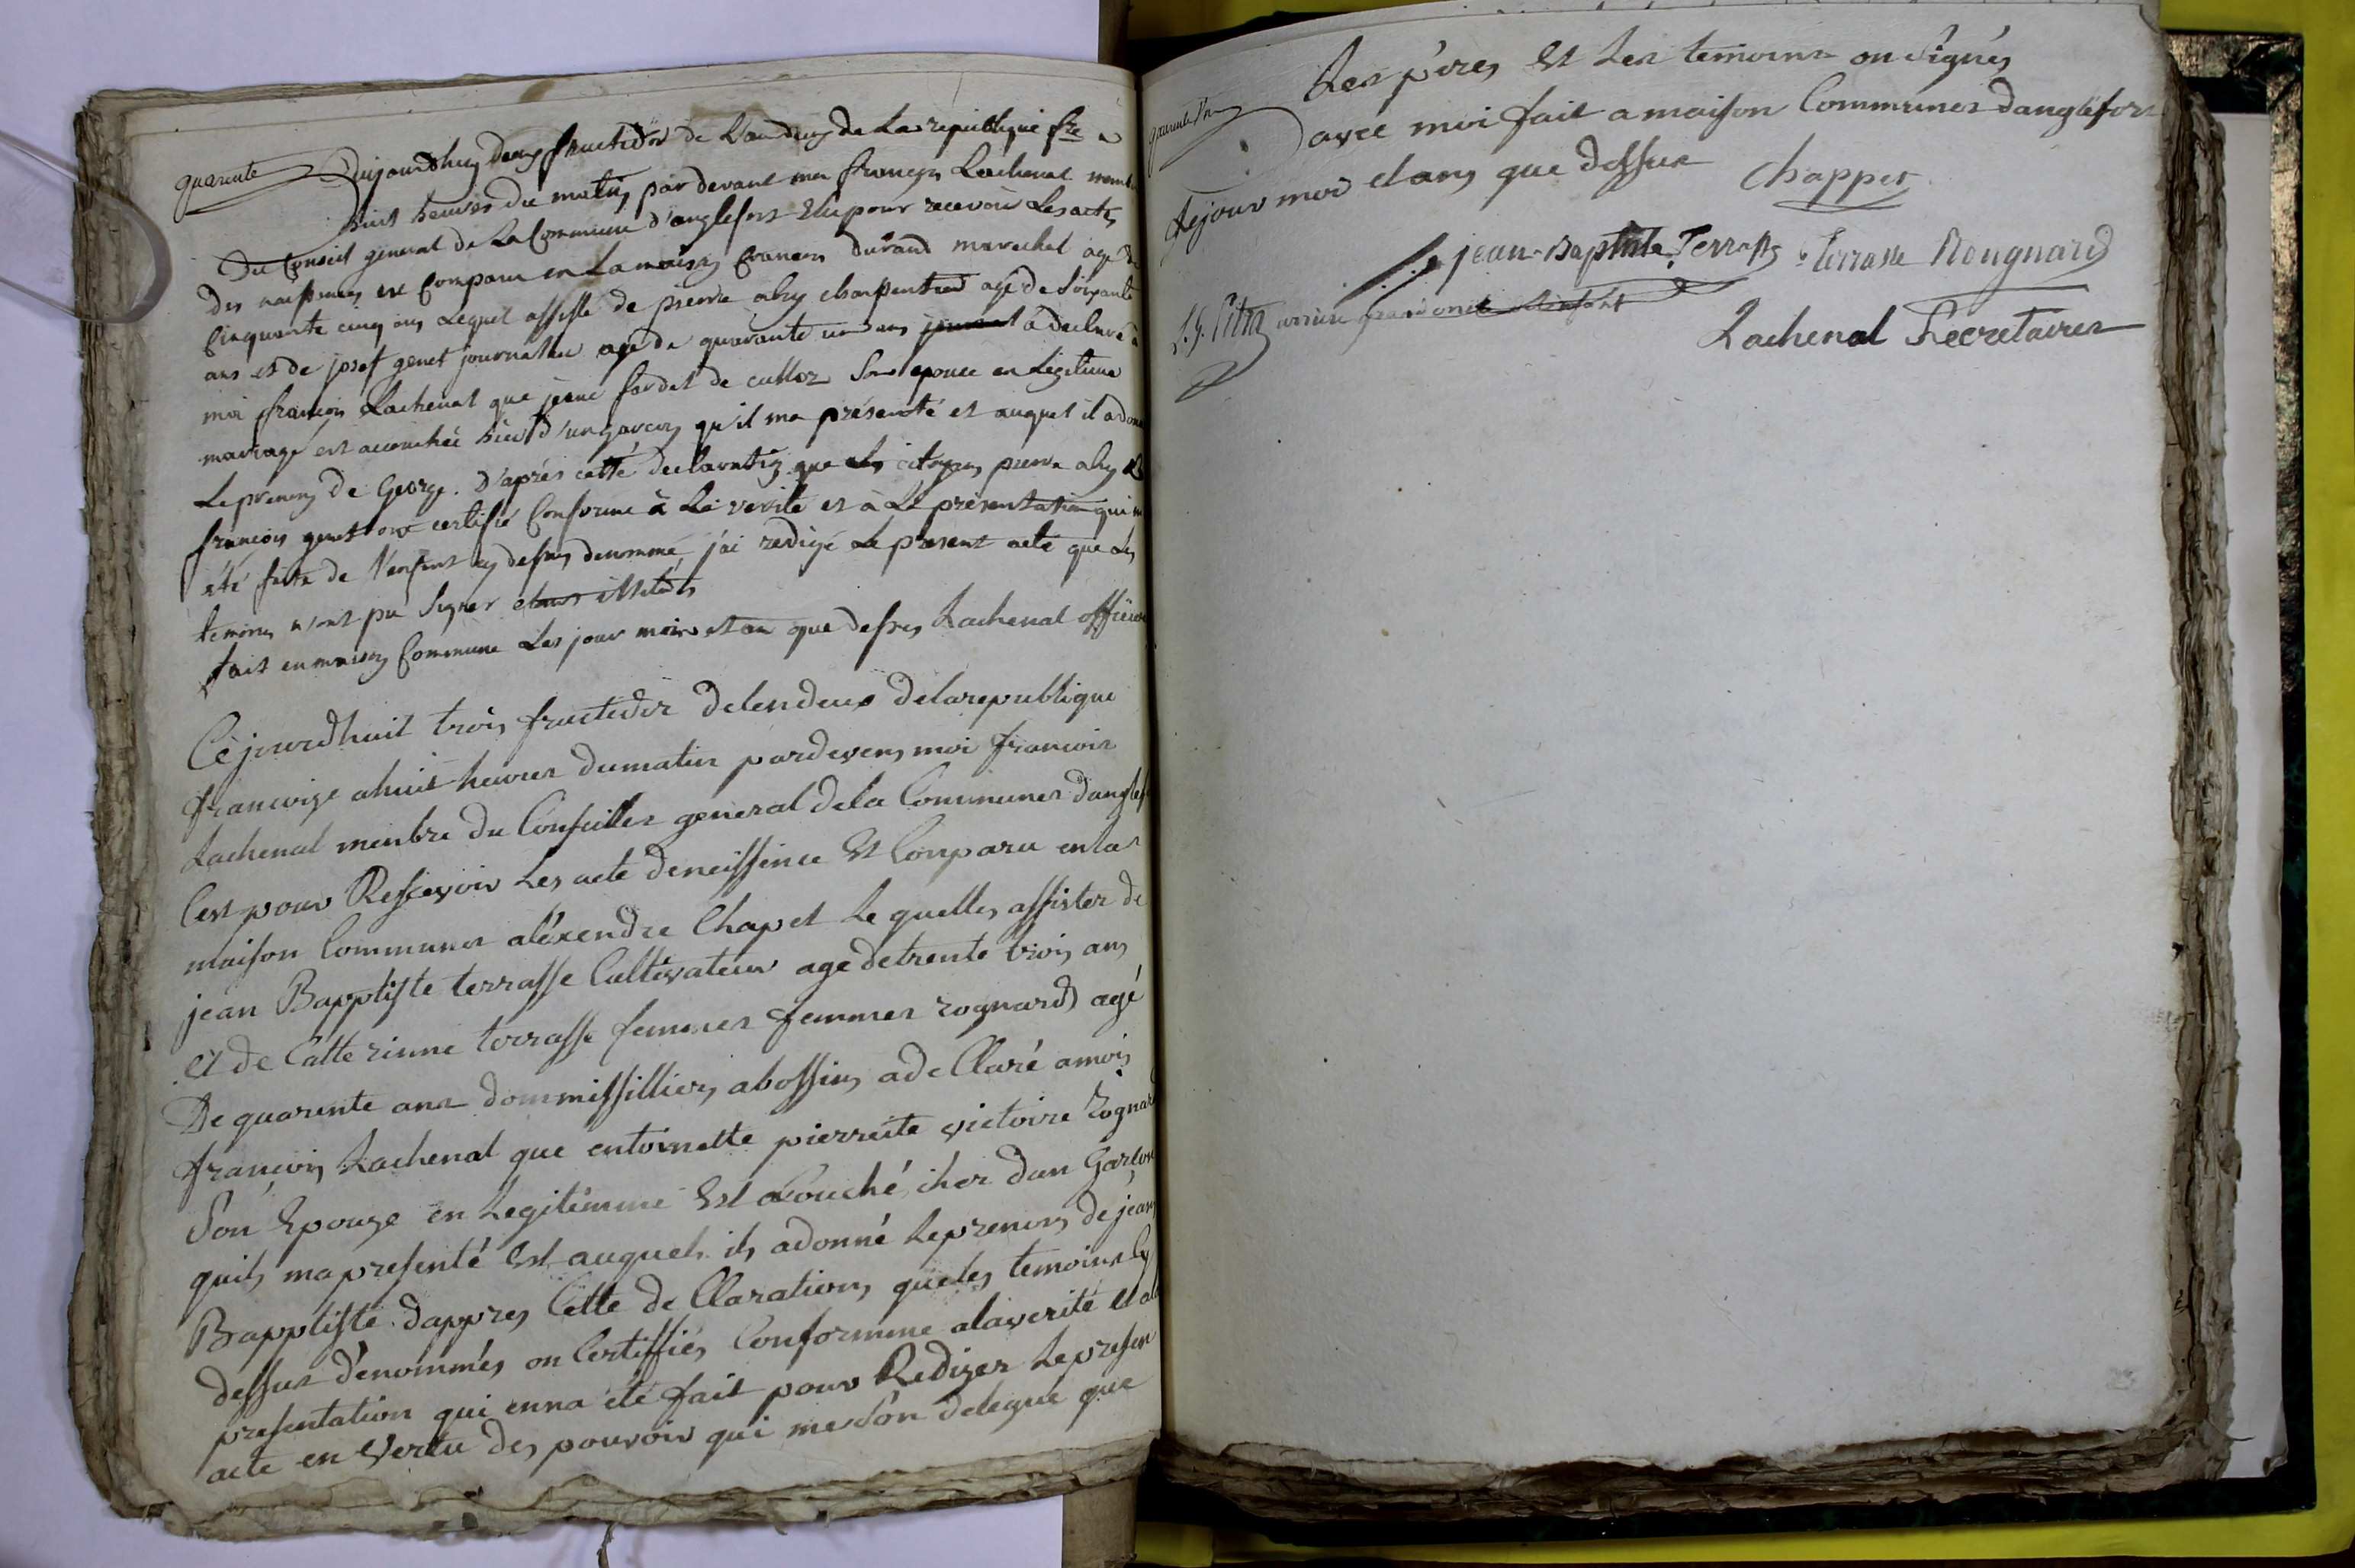 quarente
Aujourdhuy deux fructidor de Lan deux de La republique fse a
huit heures du matin par devant moi françois Lachenal membre
Du Conseil general de La Commune d'anglefort Elu pour recevoir Les actes
des naissances est Comparu en La maison Commune durand marechal agé de
Cinquante cinq ans Lequel assisté de pierre alry charpentier agé de soixante
ans et de josef genet journalier agé de quarante un ans a declaré à
moi françois Lachenal que jeane fordet de culloz Son epouce en Legitime
mariage est accouchée hier d'un garcon qu'il ma présenté et auquel il a donné
Le prenom de George. D'aprés cette declaration que les citoyens pierre alry et
francois genet ont certifié Conforme à La verité et à La presentation qui m
été faite de l'enfant cy dessus denommé, j'ai redigé Le present acte que les
temoins n'ont pu Signer etant illiterés
fait en maison Commune Les jour mois et an que dessus Lachenal officier
Cejourdhuit trois fructidor delendeux delarepublique
francoize ahuit heures dumatin pardevens moi francois
Lachenal menbre du Confeiller general dela Communes danglefo
Cest pour Rescevoir Les acte deneissence Et Conparu enla
maison Communes aléxendre Chapet Le quelles assister de
jean Bapptiste terrasse Cultivateur age detrente trois ans
et de Catterinne terrasse femmes femmes rognard agé
De quarente ans dommissilliers abossins ade Claré amois
françois Lachenal que entoinette pierrette victoire Rognard
Son Epouze en Legitimme Est acouché, iher dun Garçon
quils mapresenté Est auquels ils adonné Leprenons de jean
Bapptiste. dappres Cette de Clarations que les temoins Cy
dessus dénommés on Certiffiés Conformme alaverité et ala
presentation qui enna été fait pour Rediger Lepresen
acte en Vertu des pouvoir qui me son delegue que
quarente un
Les péres et Les temoins on Signés
avec moi fait a maison Communes danglefort
Lejour moi etans que dessus
Chappet
jean-Baptiste Terrasse terrasse Rougnard
arriere grand oncle
Lachenal Secretaires